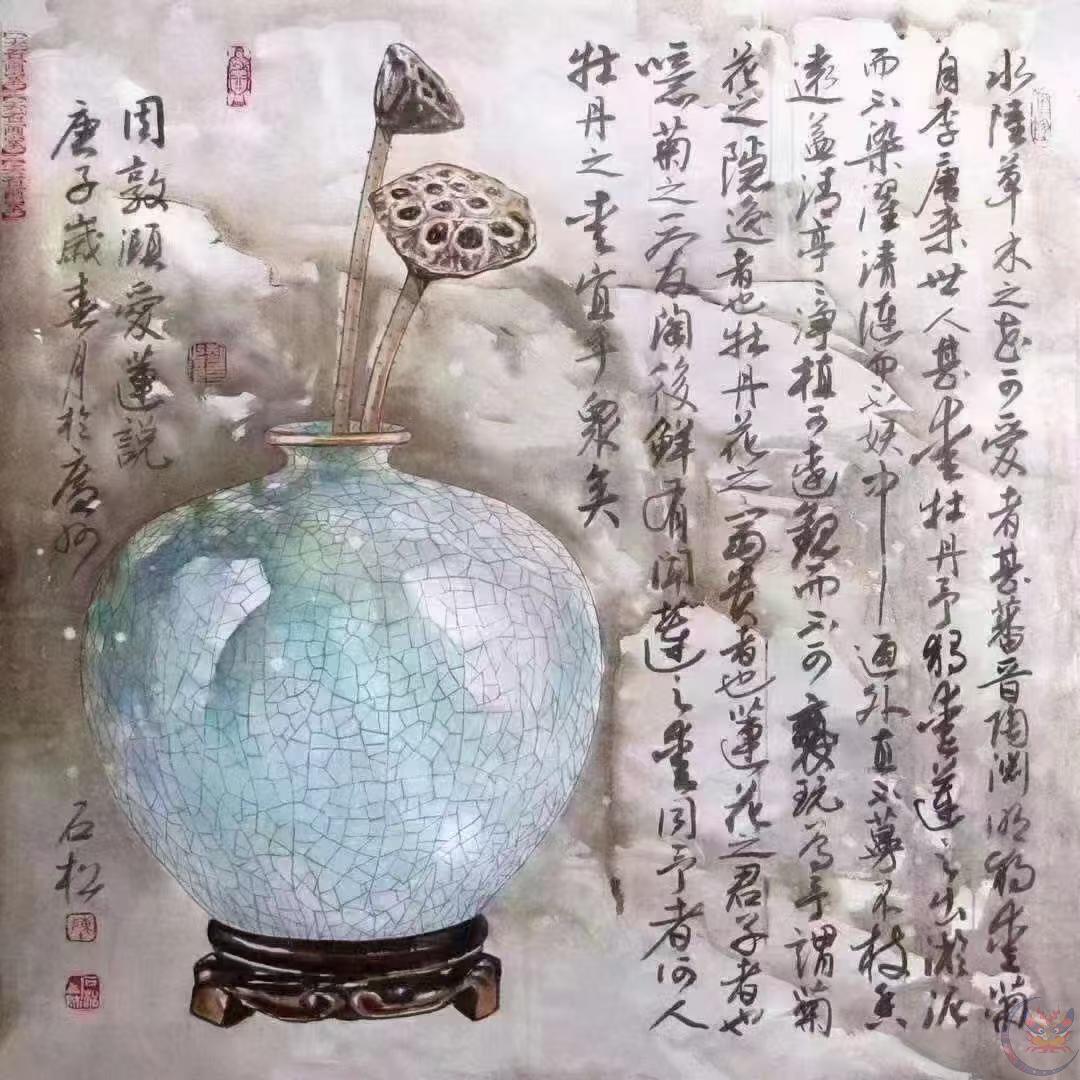 水陸草木之花可愛者甚蕃晋陶渊明独爱菊
自李唐来世人甚爱牡丹予独爱蓮之出淤泥
而不染濯清漣而不妖中通外直不蔓不枝香
遠益清亭亭淨植可遠觀而不可褻玩焉予謂菊
花之隱逸者也牡丹花之富贵者也蓮花之君子者也
噫菊之爱陶後鮮有闻蓮之爱同予者何人
牡丹之爱宜乎眾矣
周敦頤愛蓮説
庚子歲春月於廣州
石松